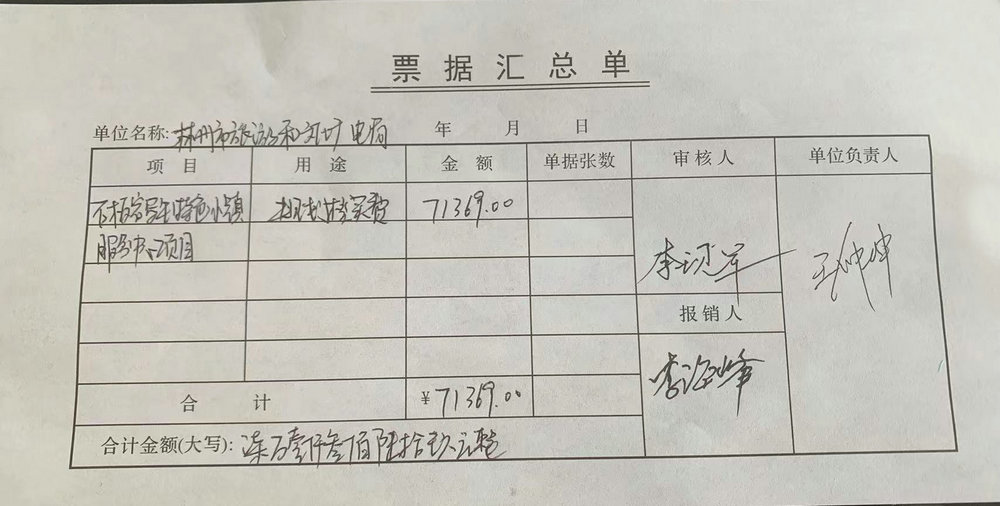 票据汇总单
单位名称: 林州市旅游和文广电局 年 月 日
项目 用途 金额 单据张数 审核人 单位负责人
石板岩写生特色小镇 规划核实费 71369.00
服务中心项目
李 军
王
报销人
李海峰
合计 ¥71369.00
合计金额(大写): 柒万壹仟叁佰陆拾玖元整